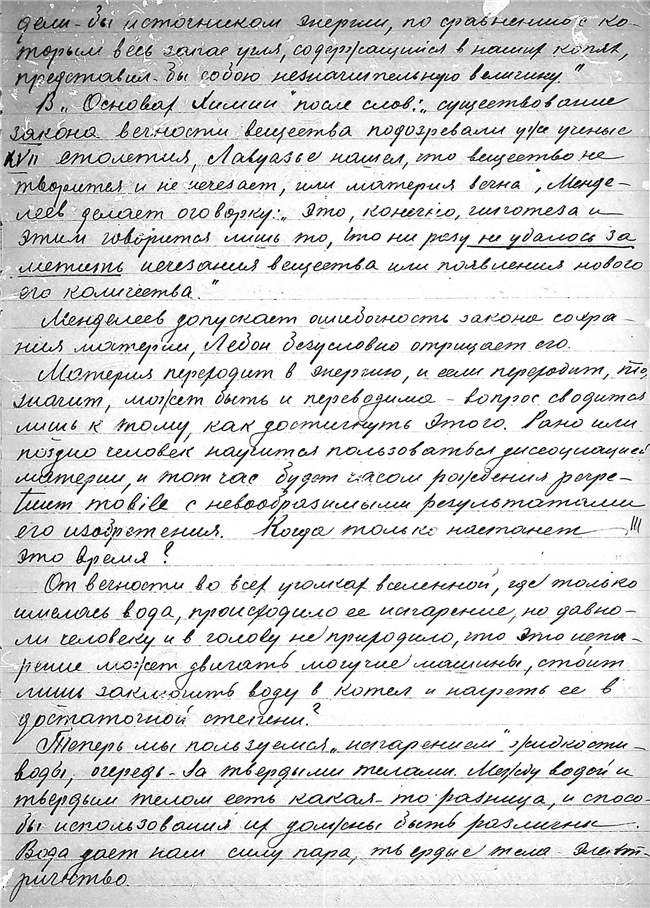 дели-бы источником энергии, по сравнению с ко-
торым весь запас угля, содержащийся в наших копях,
представил-бы собою незначительную величину"
В „Основах Химии" после слов: „существование
закона вечности вещества подозревали уже ученые
XVII столетия, Лавуазье нашел, что вещество не
творится и не исчезает, или материя вечна", Менде-
леев делает оговорку: „Это, конечно, гипотеза и
этим говорится лишь то, что ни разу не удалось за
метить исчезания вещества или появления нового
его количества."
Менделеев допускает ошибочность закона сохра-
ния материи, Лебон безусловно отрицает его.
Материя переходит в энергию, и если переходит, то,
значит, может быть и переводима - вопрос сводится
лишь к тому, как достигнуть этого. Рано или
поздно человек научится пользоваться диссоциацией
материи, и тот час будет часом рождения perpe-
tuum mobile с невообразимыми результатами
его изобретения. Когда только настанет
это время?
От вечности во всех уголках вселенной, где только
имелась вода, происходило ее испарение, но давно-
ли человеку и в голову не приходило, что это испа-
рение может двигать могучие машины, стоит
лишь заключить воду в котел и нагреть ее в
достаточной степени?
Теперь мы пользуемся „испарением" жидкости-
воды, очередь-за твердыми телами. Между водой и
твердым телом есть какая-то разница, и спосо-
бы использования их должны быть различны.
Вода дает нам силу пара, твердые тела электр-
ричество.